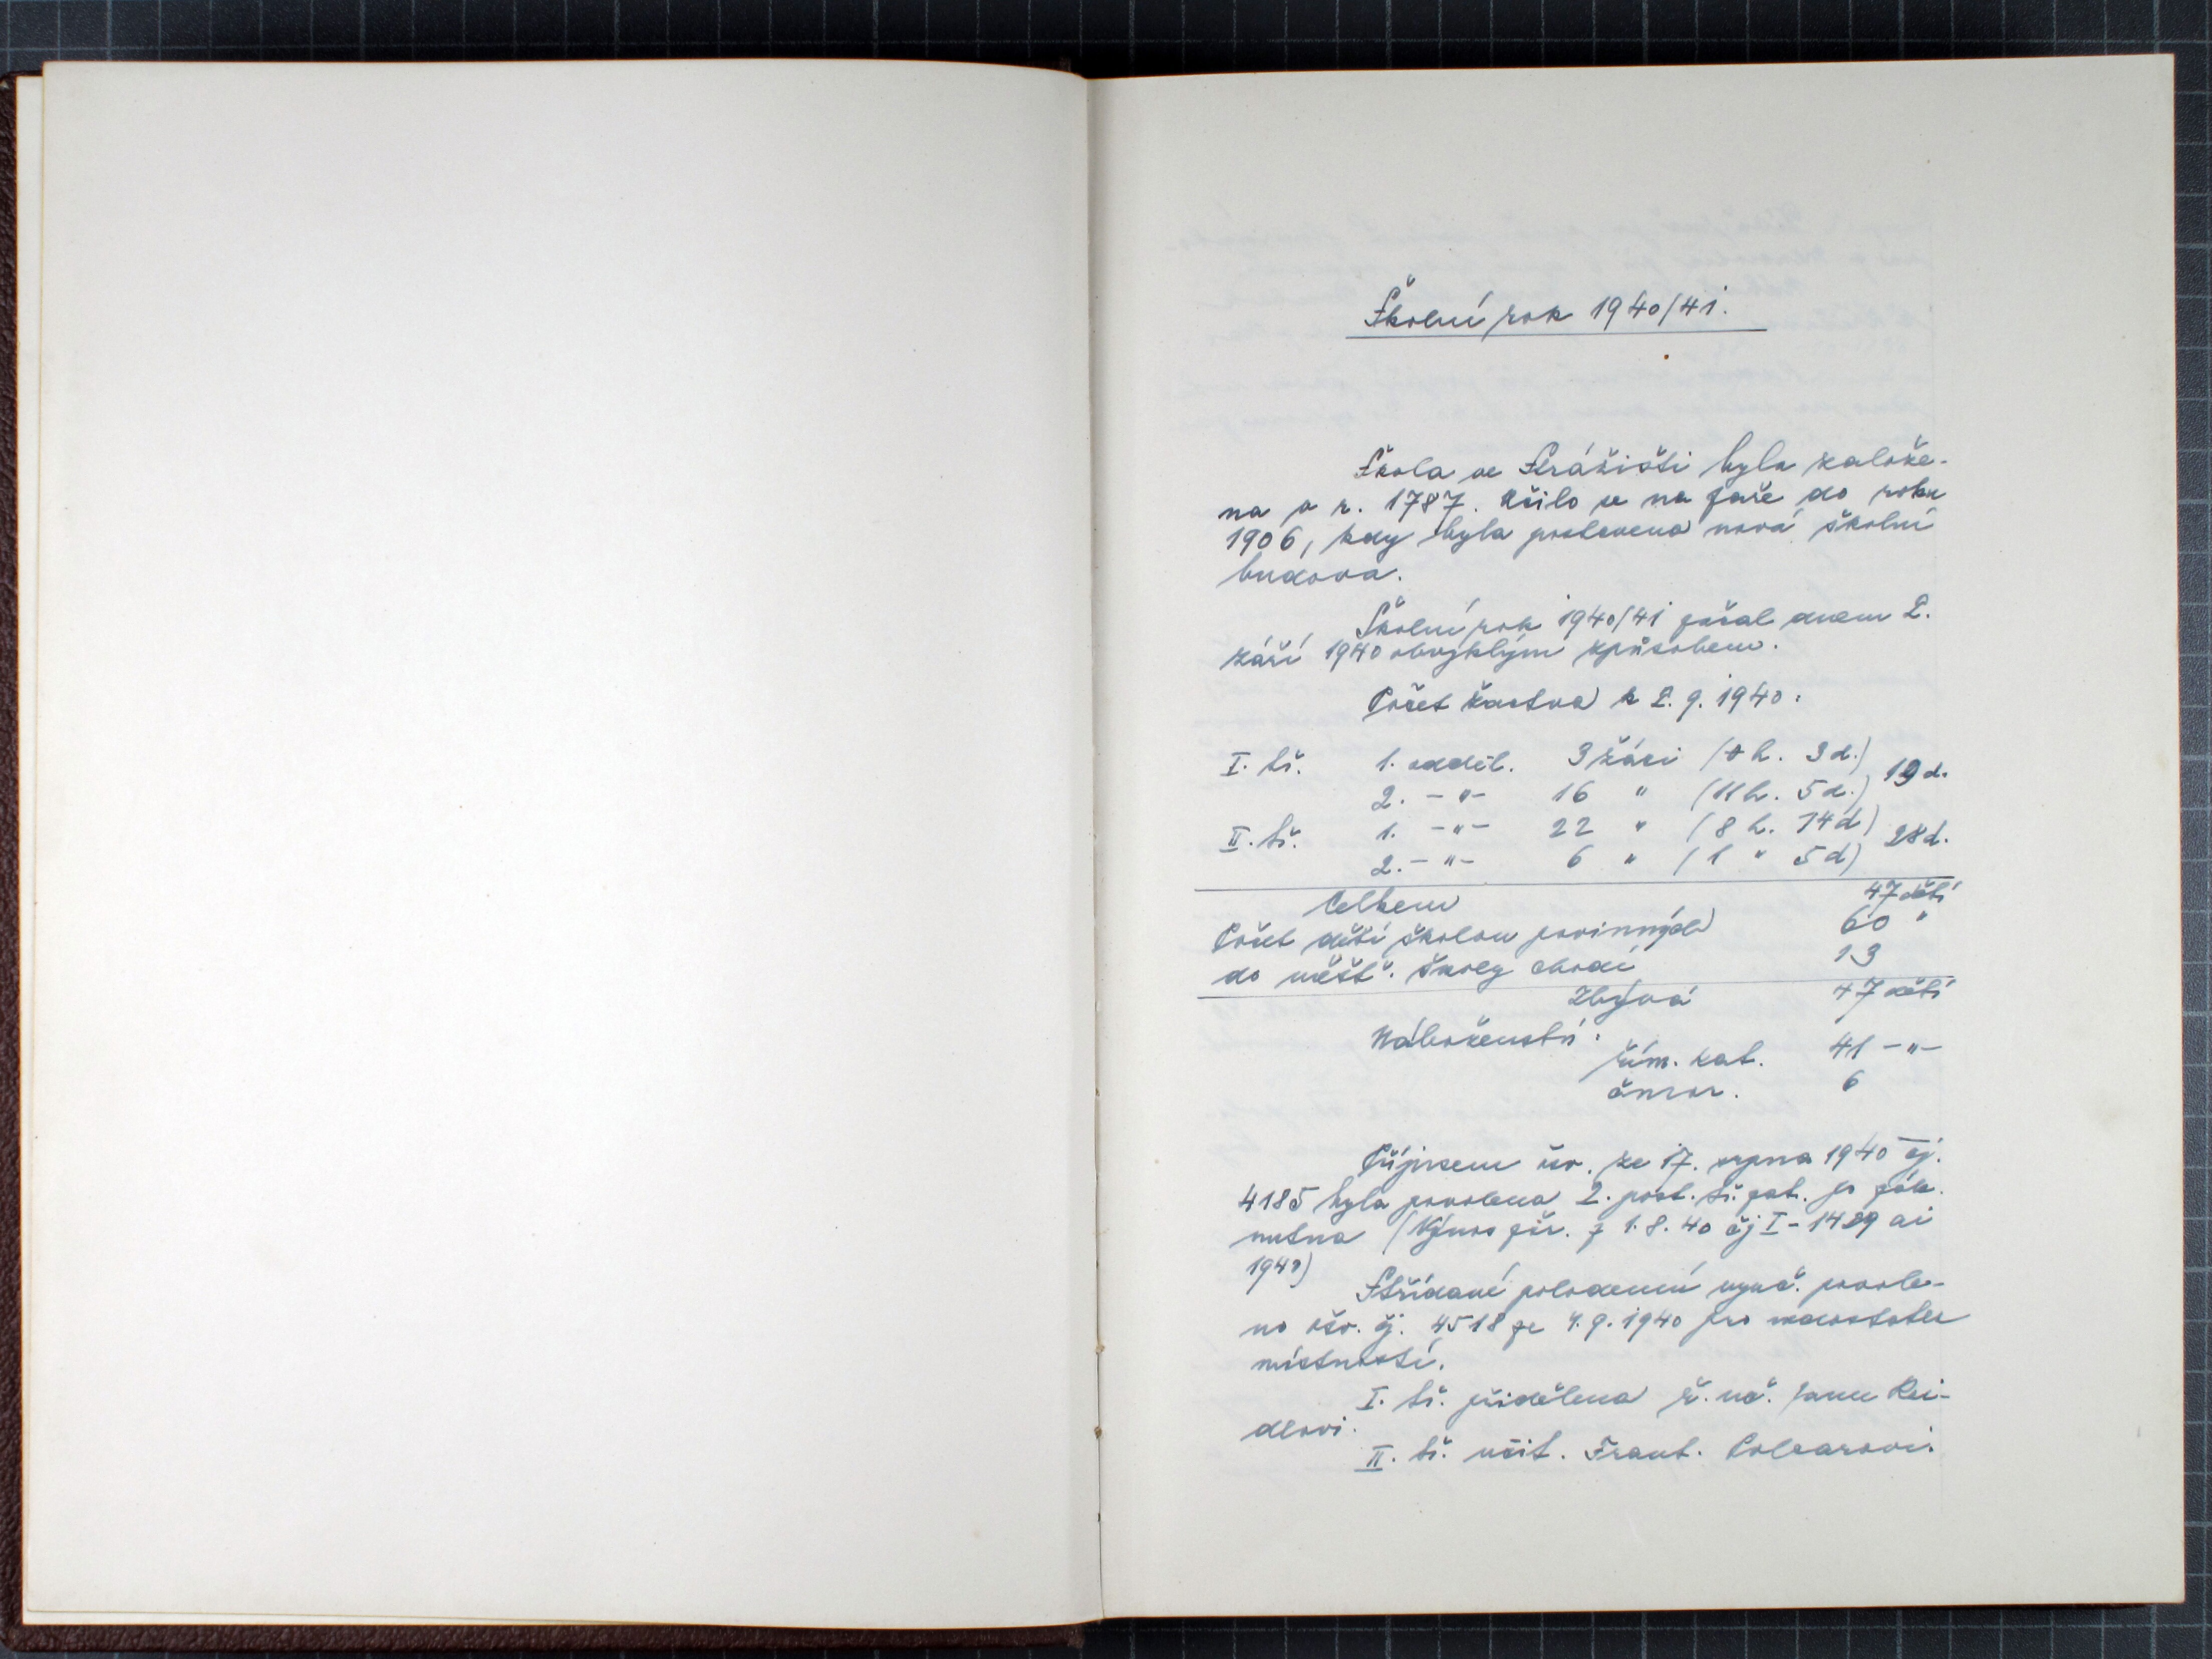 Školní rok 1940/41.
Škola ve Strážišti byla založe-
na v r. 1787. Učilo se na faře do roku
1906, kdy byla postavena nová školní
budova.
Školní rok 1940/41 začal dnem 2.
září 1940 obvyklým způsobem.
Počet žactva k 2. 9. 1940:
I. tř. 1. odděl. 3 žáci (0 h. 3 d.) 19 d.
2. -"- 16 " (11 h. 5 d.)
II. tř. 1. -"- 22 " (8 h. 14 d) 28 d.
2. -"- 6 " (1 " 5 d)
Celkem 47 dětí
Počet dětí školou povinných 60 "
do měšť. školy chodí 13
Zbývá 47 dětí
Náboženství:
řím. kat. 41 -"-
čmor. 6
Přípisem ze 17. srpna 1940 čj.
4185 byla povolena 2. post. tř.
nutna (Výnos 1. 8. 40 čj I - 1429 ai
1940)
Střídavé polodenní vyuč. povole-
no ošv. čj. 4518 ze 4. 9. 1940 pro nedostatek
místností.
I. tř. přidělena ř. uč. Janu Rei-
dlovi.
II. tř. učit. Frant.